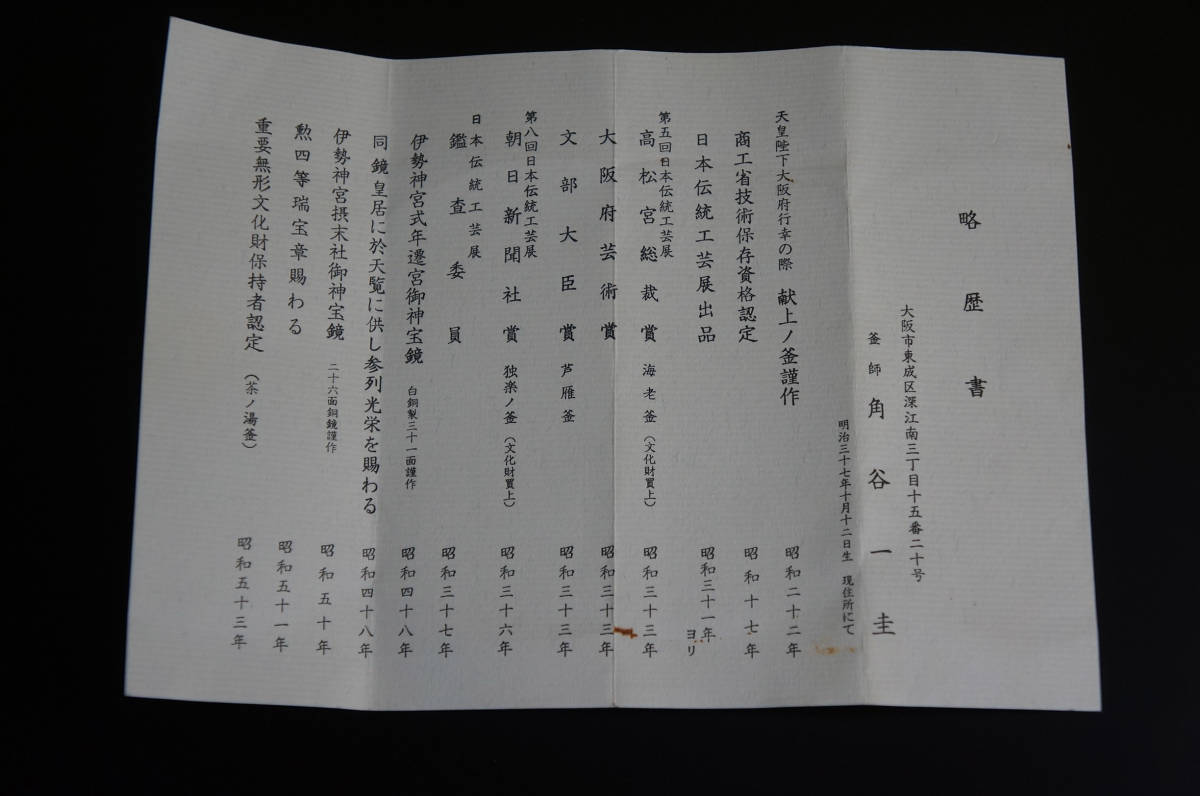 略歴書
大阪市東成区深江南三丁目十五番二十号
釜師 角谷一圭
明治三十七年十月十二日生 現住所にて
天皇陛下大阪府行幸の際 献上ノ釜謹作 昭和二十二年
商工省技術保存資格認定 昭和十七年
日本伝統工芸展出品 昭和三十一年ヨリ
第五回日本伝統工芸展
高松宮総裁賞 海老釜(文化財買上) 昭和三十三年
大阪府芸術賞 昭和三十三年
文部大臣賞 芦雁釜 昭和三十三年
第八回日本伝統工芸展
朝日新聞社賞 独楽ノ釜(文化財買上) 昭和三十六年
日本伝統工芸展
鑑査委員 昭和三十七年
伊勢神宮式年遷宮御神宝鏡 白銅製三十一面謹作 昭和四十八年
同鏡皇居に於天覧に供し参列光栄を賜わる 昭和四十八年
伊勢神宮摂末社御神宝鏡 二十六面銅鏡謹作 昭和五十年
勲四等瑞宝章賜わる 昭和五十一年
重要無形文化財保持者認定(茶ノ湯釜) 昭和五十三年